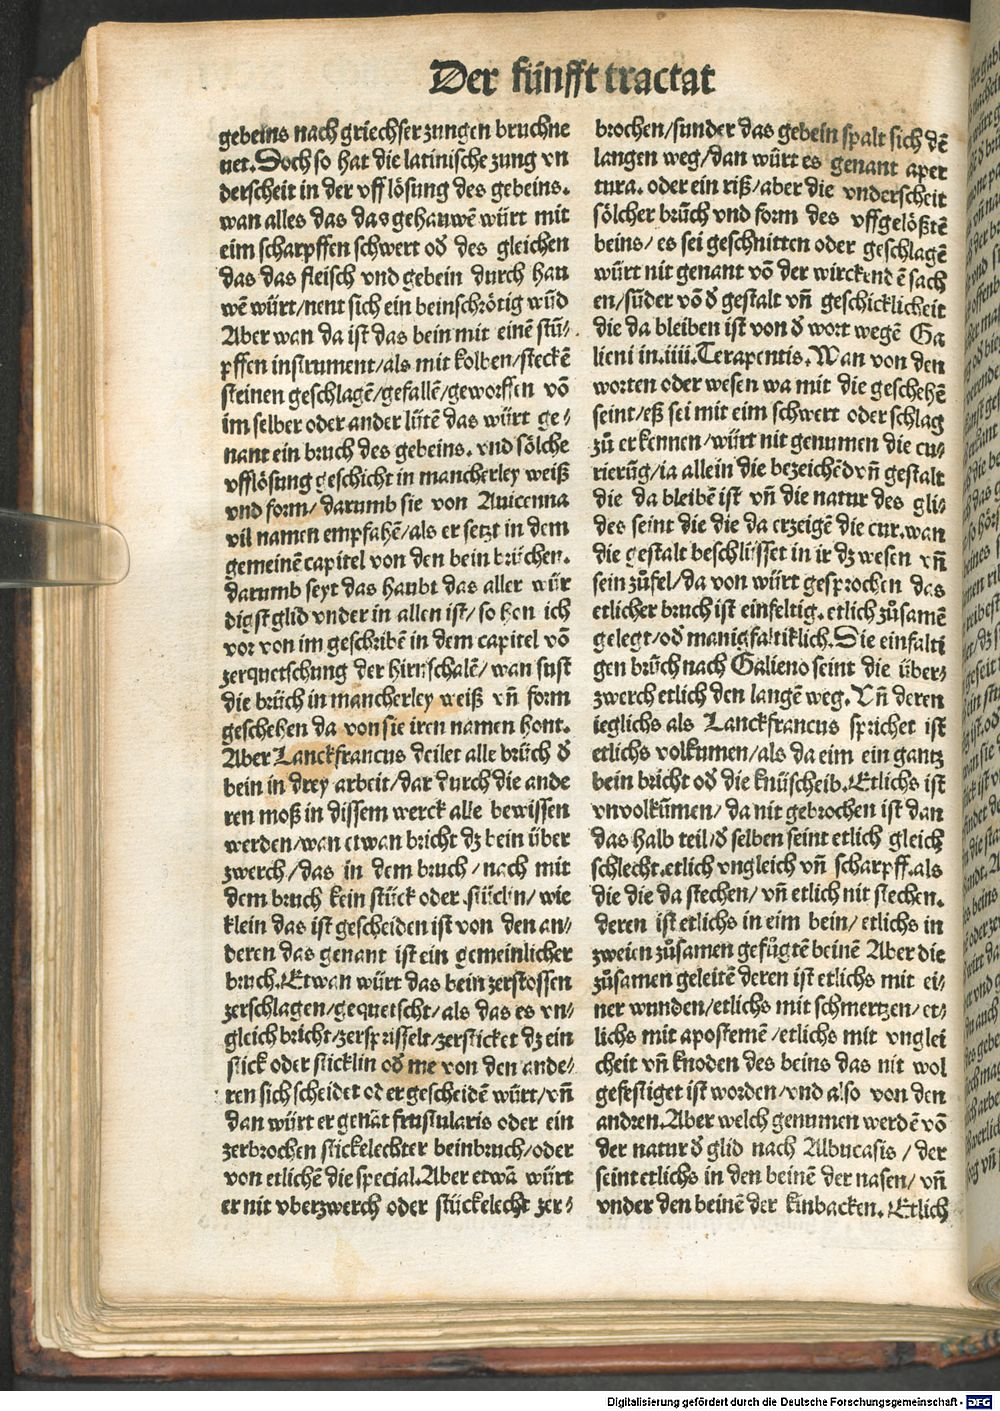 Der fünfft tractat
gebeins nach griechser zungen bruchne
net. Doch so hat die latinische zung vn
derscheit in der vfflösung des gebeins.
wan alles das das gehauwē würt mit
eim scharpffen schwert od̄ des gleichen
das das fleisch vnd gebein durch hau
wē würt/nent sich ein beinschrötig wūd
Aber wan da ist das bein mit einē stū-
pffen instrument/als mit kolben/steckē
steinen geschlagē/gefallē/geworffen vō
im selber oder ander lüten das würt ge-
nant ein bruch des gebeins. vnd sölche
vfflösung geschicht in mancherley weiß
vnd form/darumb sie von Auicenna
vil namen empfahē/als er setzt in dem
gemeinē capitel von den bein brüchen.
darumb seyt das haubt das aller wür
digst glid vnder in allen ist/so hen ich
vor von im geschribē in dem capitel vō
zerquetschung der hirnschalē/wan sust
die brüch in mancherley weiß vñ form
geschehen da von sie iren namen hont.
Aber Lanckfrancus teilet alle brüch d̄
bein in drey arbeit/dar durch die ande
ren moß in dissem werck alle bewissen
werden/wan etwan bricht dz bein über
zwerch/das in dem bruch/nach mit
dem bruch kein stück oder stücklin/wie
klein das ist gescheiden ist von den an-
deren das genant ist ein gemeinlicher
bruch. Etwan würt das bein zerstossen
zerschlagen/gequetscht/als das es vn-
gleich bricht/zersprisselt/zersticket dz ein
stick oder sticklin od̄ me von den ande-
ren sich scheidet oder gescheidē würt/vñ
dan würt er genāt frustularis oder ein
zerbrochen stickelechter beinbruch/oder
von etlichē die special. Aber etwā würt
er nit vberzwerch oder stückelecht zer-
brochen/sunder das gebein spalt sich dē
langen weg/dan würt es genant aper
tura. oder ein riß/aber die vnderscheit
sölcher brüch vnd form des vffgelößtē
beins/es sei geschnitten oder geschlagē
würt nit genant vō der wirckendē sach
en/sūder vō d̄ gestalt vñ geschicklicheit
die da bleiben ist von d̄ wort wegē Ga
lieni in .iiii. Terapentis. Wan von den
worten oder wesen wa mit die geschehē
seint/eß sei mit eim schwert oder schlag
zů erkennen/würt nit genumen die cu-
rierūg/ia allein die bezeichēd vñ gestalt
die da bleibē ist vñ die natur des gli-
des seint die die da erzeigē die cur. wan
die gestalt beschlüsset in ir dz wesen vñ
sein zůfel/da von würt gesprochen das
etlicher bruch ist einfeltig. etlich zůsamē
gelegt/od̄ manigfaltiklich. Die einfalti
gen brüch nach Galieno seint die über-
zwerch etlich den langē weg. Vñ deren
ieglichs als Lanckfrancus sprichet ist
etlichs volkumen/als da eim ein gantz
bein bricht od̄ die knüscheib. Etlichs ist
vnvolkūmen/da nit gebrochen ist dan
das halb teil/d̄ selben seint etlich gleich
schlecht. etlich vngleich vñ scharpff. als
die die da stechen/vñ etlich nit stechen.
deren ist etlichs in eim bein/etlichs in
zweien zůsamen gefügtē beinē Aber die
zůsamen geleitē deren ist etlichs mit ei-
ner wunden/etlichs mit schmertzen/et-
lichs mit apostemē/etlichs mit vnglei
cheit vñ knoden des beins das nit wol
gefestiget ist worden/vnd also von den
andren. Aber welch genumen werdē vō
der natur d̄ glid nach Albucasis/der
seint etlichs in den beinē der nasen/vñ
vnder den beinē der kinbacken. Etlich
Digitalisierung gefördert durch die Deutsche Forschungsgemeinschaft - DFG